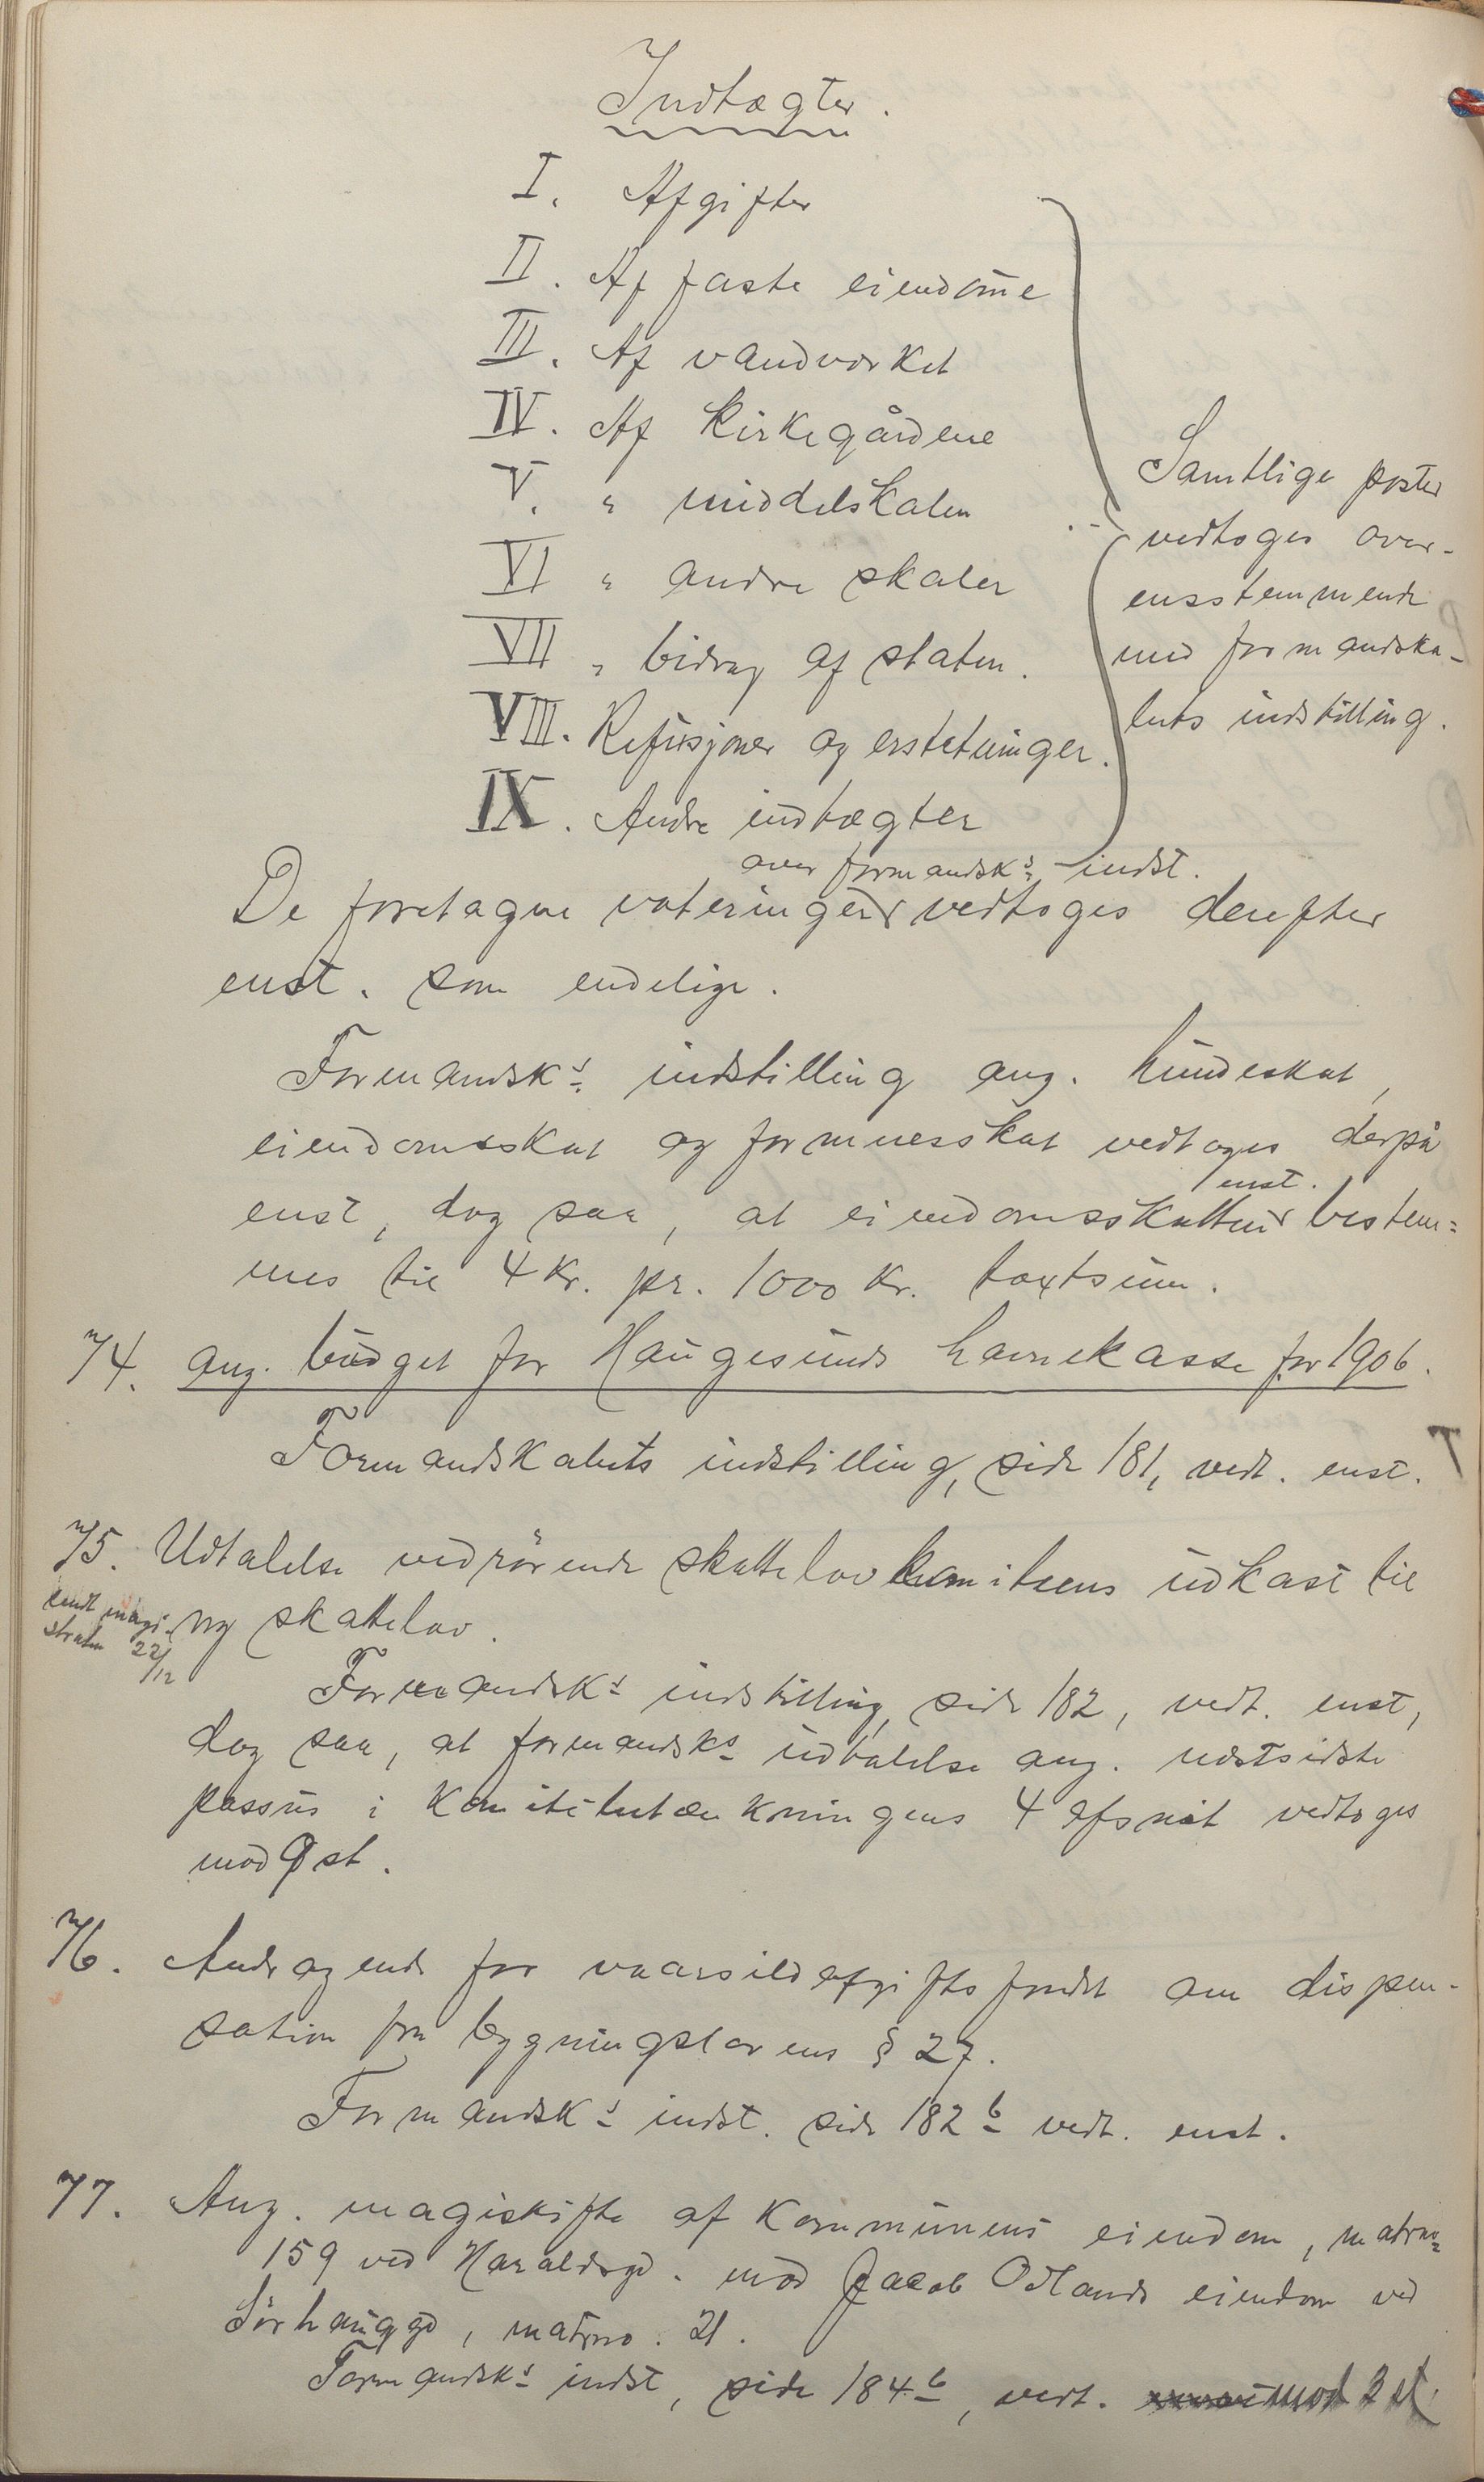 Indtægter.
I. Afgifter
II. Af faste eiendom̄e
III. Af vandverket
IV. Af Kirkegårdene
V. " middelskolen
VI " andre skoler
VII " bidrag af staten.
VIII. Refusjoner og erstatninger.
IX. Andre indtægter
Samtlige poster
vedtoges over-
ensstemmende
med formandska-
bets indstilling.
over formandsk's indst.
De foretagne voteringer vedtoges derefter
enst. som endelige.
Formandsk's indstilling ang. hundeskat,
eiendomsskat og formuesskat vedtoges derpå
enst, dog saa, at eiendomsskatten enst. bestem=
mes til 4 kr. pr. 1000 kr. taxtsum.
74. Ang. budget for Haugesunds havnekasse for 1906.
Formandskabets indstilling, side 181, vedt. enst.
75. Udtalelse vedrörende skattelovkomiteens udkast til
ny skattelov.
sendt magi-
straten 22/12
Formandsk's indstilling, side 182, vedt. enst,
dog saa, at formandsk's udtalelse ang. næstsidste
passus i Komiteindstillingens 4 afsnit vedtoges
mod 9 st.
76. Andragende for vaarsildafgiftsfondet om dispen-
sation fra bygningslovens § 27.
Formandsk's indst. side 182 b vedt. enst.
77. Ang. mageskifte af Kommunens eiendom, matrno
159 ved Haraldsgd. mod Jacob Odlands eiendom ved
Sörhauggd, matrno. 21.
Formandsk's indst, side 184 b, vedt. mod 3 st.